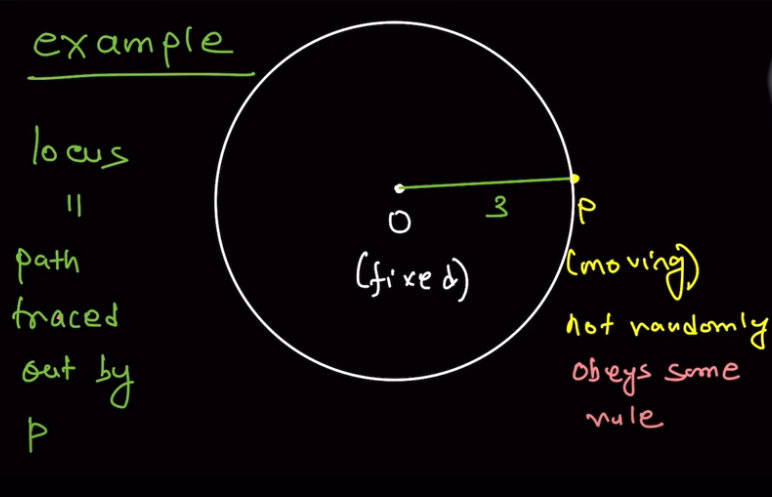 example
locus
=
path
traced
out by
P
O
(fixed)
3
P
(moving)
not randomly
obeys some
rule